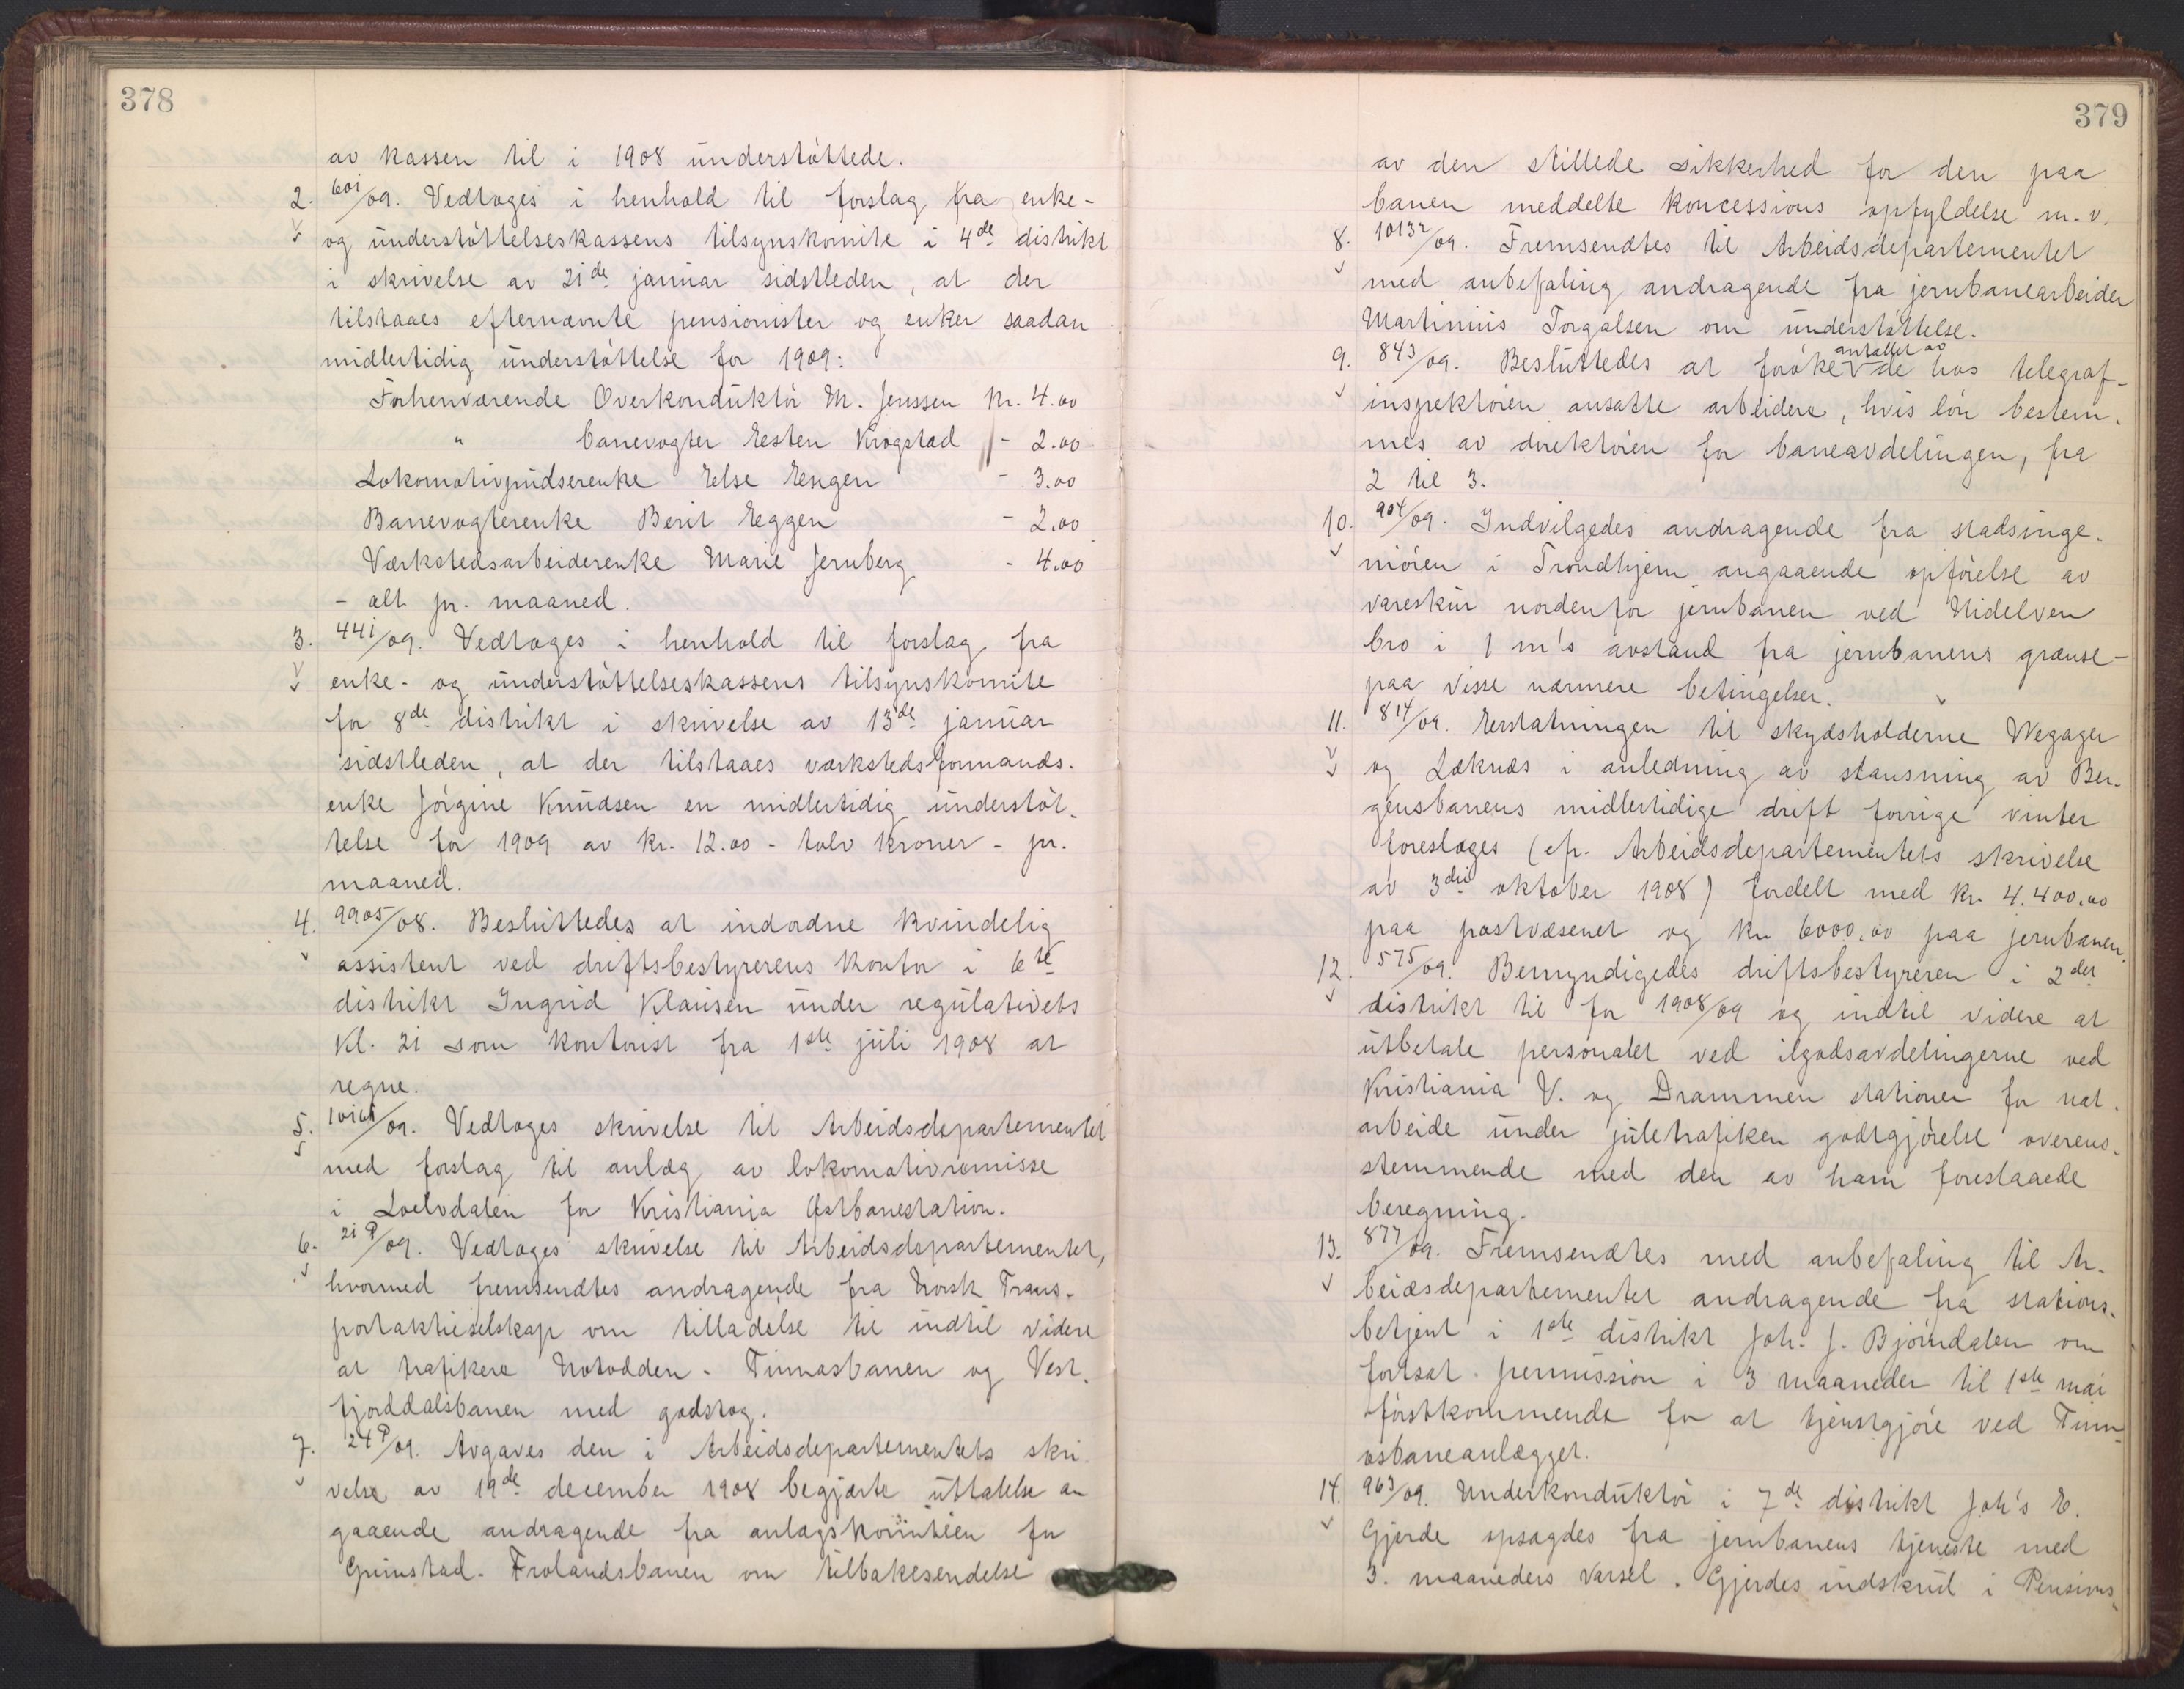 378
av kassen til i 1908 understöttede.
2. 601/09. Vedtoges i henhold til forslag fra enke-
og understöttelseskassens tilsynskomite i 4de distrikt
i skrivelse av 21de januar sidstleden, at der
tilstaaes efternævnte pensionister og enker saadan
midlertidig understöttelse for 1909:
Forhenværende Overkonduktör M. Jenssen Kr. 4.00
" banevogter Esten Krogstad - 2.00
Lokomotivpudserenke Else Engen - 3.00
Banevogterenke Berit Eggen - 2.00
Værkstedsarbeiderenke Marie Jernberg - 4.00
- alt pr. maaned.
3. 441/09. Vedtoges i henhold til forslag fra
enke- og understöttelseskassens tilsynskomite
for 8de distrikt i skrivelse av 13de januar
sidstleden, at der tilstaaes værkstedsformands-
enke Jörgine Knudsen en midlertidig understöt-
telse for 1909 av kr. 12.00 - tolv kroner - pr.
maaned.
4. 9905/08. Besluttedes at indordne kvindelig
assistent ved driftsbestyrerens kontor i 6te
distrikt Ingrid Klausen under regulativets
Kl. 21 som kontorist fra 1ste juli 1908 at
regne.
5. /09. Vedtoges skrivelse til Arbeidsdepartementet
med forslag til anlæg av lokomotivremisse
i Loelvdalen for Kristiania Østbanestation.
6. 21 P/09. Vedtoges skrivelse til Arbeidsdepartementet,
hvormed fremsendtes andragende fra Norsk Trans-
portaktieselskap om tilladelse til indtil videre
at trafikere Notodden - Tinnosbanen og Vest-
fjorddalsbanen med godstog.
7. 24 P/09. Avgaves den i Arbeidsdepartementets skri-
velse av 19de december 1908 begjærte uttalelse an
gaaende andragende fra anlægskomitéen for
Grimstad - Frolandsbanen om tilbakesendelse
379
av den stillede sikkerhed for den paa
banen meddelte koncessions opfyldelse m. v.
8. 10132/09. Fremsendtes til Arbeidsdepartementet
med anbefaling andragende fra jernbanearbeider
Martinius Torgalsen om understöttelse.
9. 843/09. Besluttedes at foröke antallet av de hos telegraf-
inspektören ansatte arbeidere, hvis lön bestem-
mes av direktören for baneavdelingen, fra
2 til 3.
10. 904/09. Indvilgedes andragende fra stadsinge-
niören i Trondhjem angaaende opförelse av
vareskur nordenfor jernbanen ved Nidelven
bro i 1 m's avstand fra jernbanens grænse -
paa visse nærmere betingelser.
11. 814/09. Erstatningen til skydsholderne Wegager
og Læknæs i anledning av stansning av Ber-
gensbanens midlertidige drift forrige vinter
foreslages (cfr. Arbeidsdepartementets skrivelse
av 3die oktober 1908) fordelt med kr. 4.400.00
paa postvæsenet og kr 6000.00 paa jernbanen.
12. 575/09. Bemyndigedes driftsbestyreren i 2det
distrikt til for 1908/09 og indtil videre at
utbetale personalet ved ilgodsavdelingerne ved
Kristiania V. og Drammen stationer for nat-
arbeide under juletrafiken godtgjörelse overens-
stemmende med den av ham foreslaaede
beregning.
13. 877/09. Fremsendtes med anbefaling til Ar-
beidsdepartementet andragende fra stations-
betjent i 1ste distrikt Joh. J. Björndalen om
fortsat permission i 3 maaneder til 1ste mai
förstkommende for at tjenstgjöre ved Tinn-
osbaneanlægget.
14. 963/09. Underkonduktör i 7de distrikt Joh's E.
Gjerde opsagdes fra jernbanens tjeneste med
3. maaneders varsel. Gjerdes indskud i Pensions-